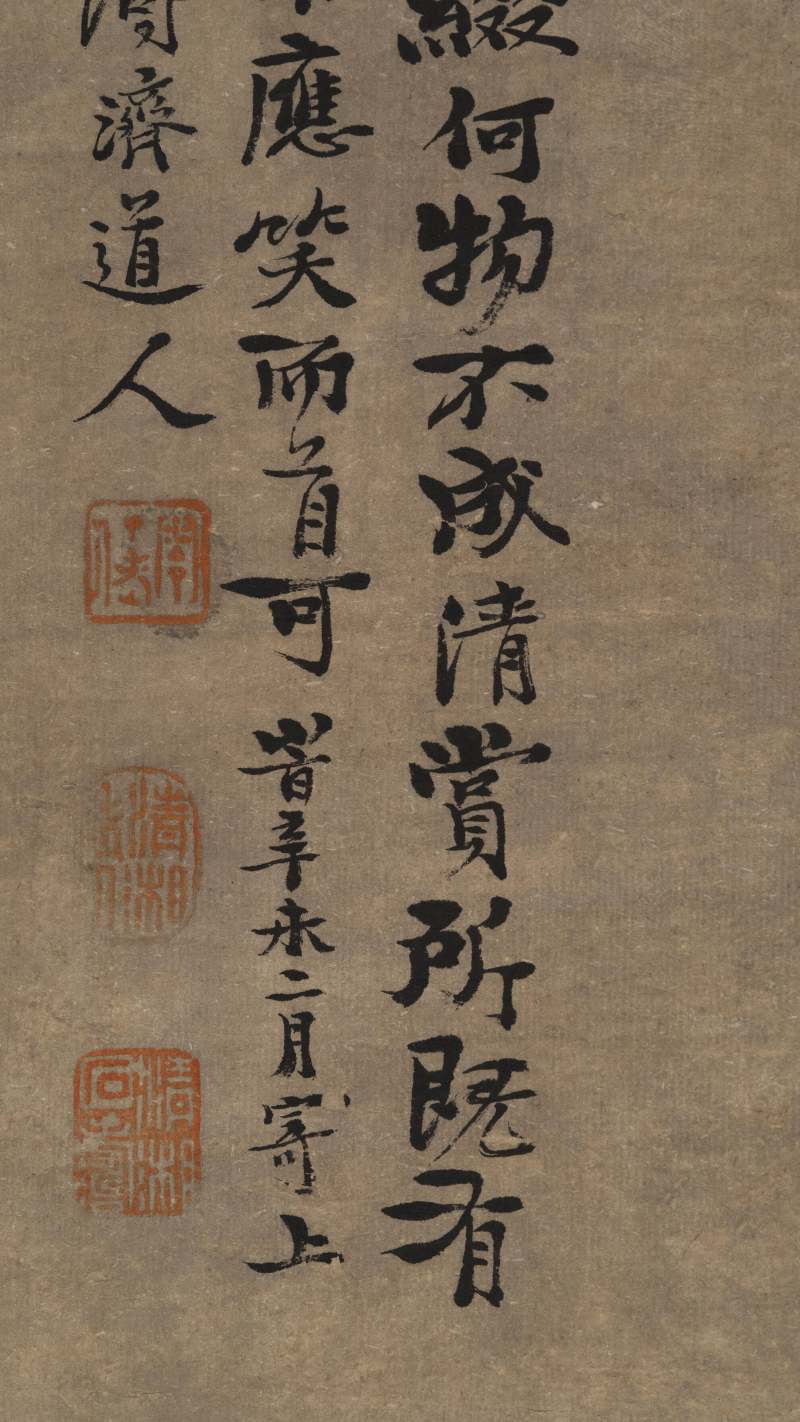 綴何物不成清賞所既有
應笑而首可 旹辛未二月寄上
濟道人
清湘